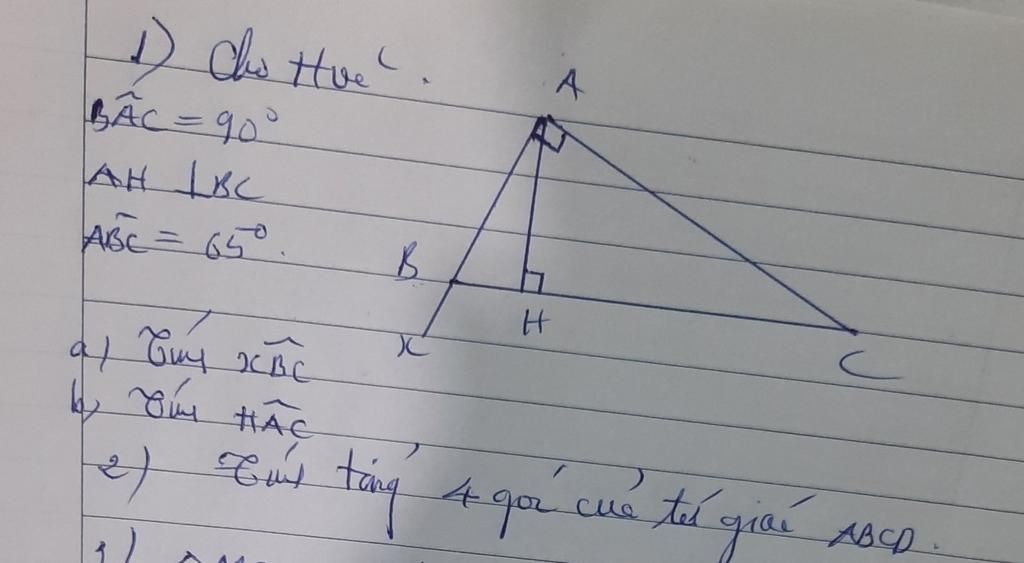 1) Cho HVẽ.
A
BÂC = 90°
AH ⊥ BC
ABC = 65°.
B
H
x
C
a) Tính xBC
b) Tính HAC
2) Tính tổng 4 góc của tứ giác ABCD.
3)